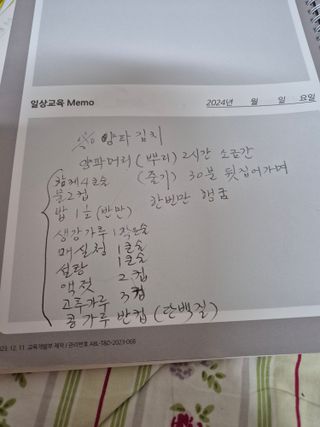 일상교육 Memo
2024년 월 일 요일
양파 김치
양파머리 (뿌리) 2시간 소금간
(줄기) 30분 뒷집어가며
한번만 헹굼
황체 4큰술
물2컵
밥 1½ (반만)
생강가루 1작은술
매실청 1큰술
설탕 1큰술
액젓 2컵
고추가루 3컵
콩가루 반컵 (단백질)
023. 12. 11. 교육개발부 제작 / 관리번호 ABL-T&D-2023-068